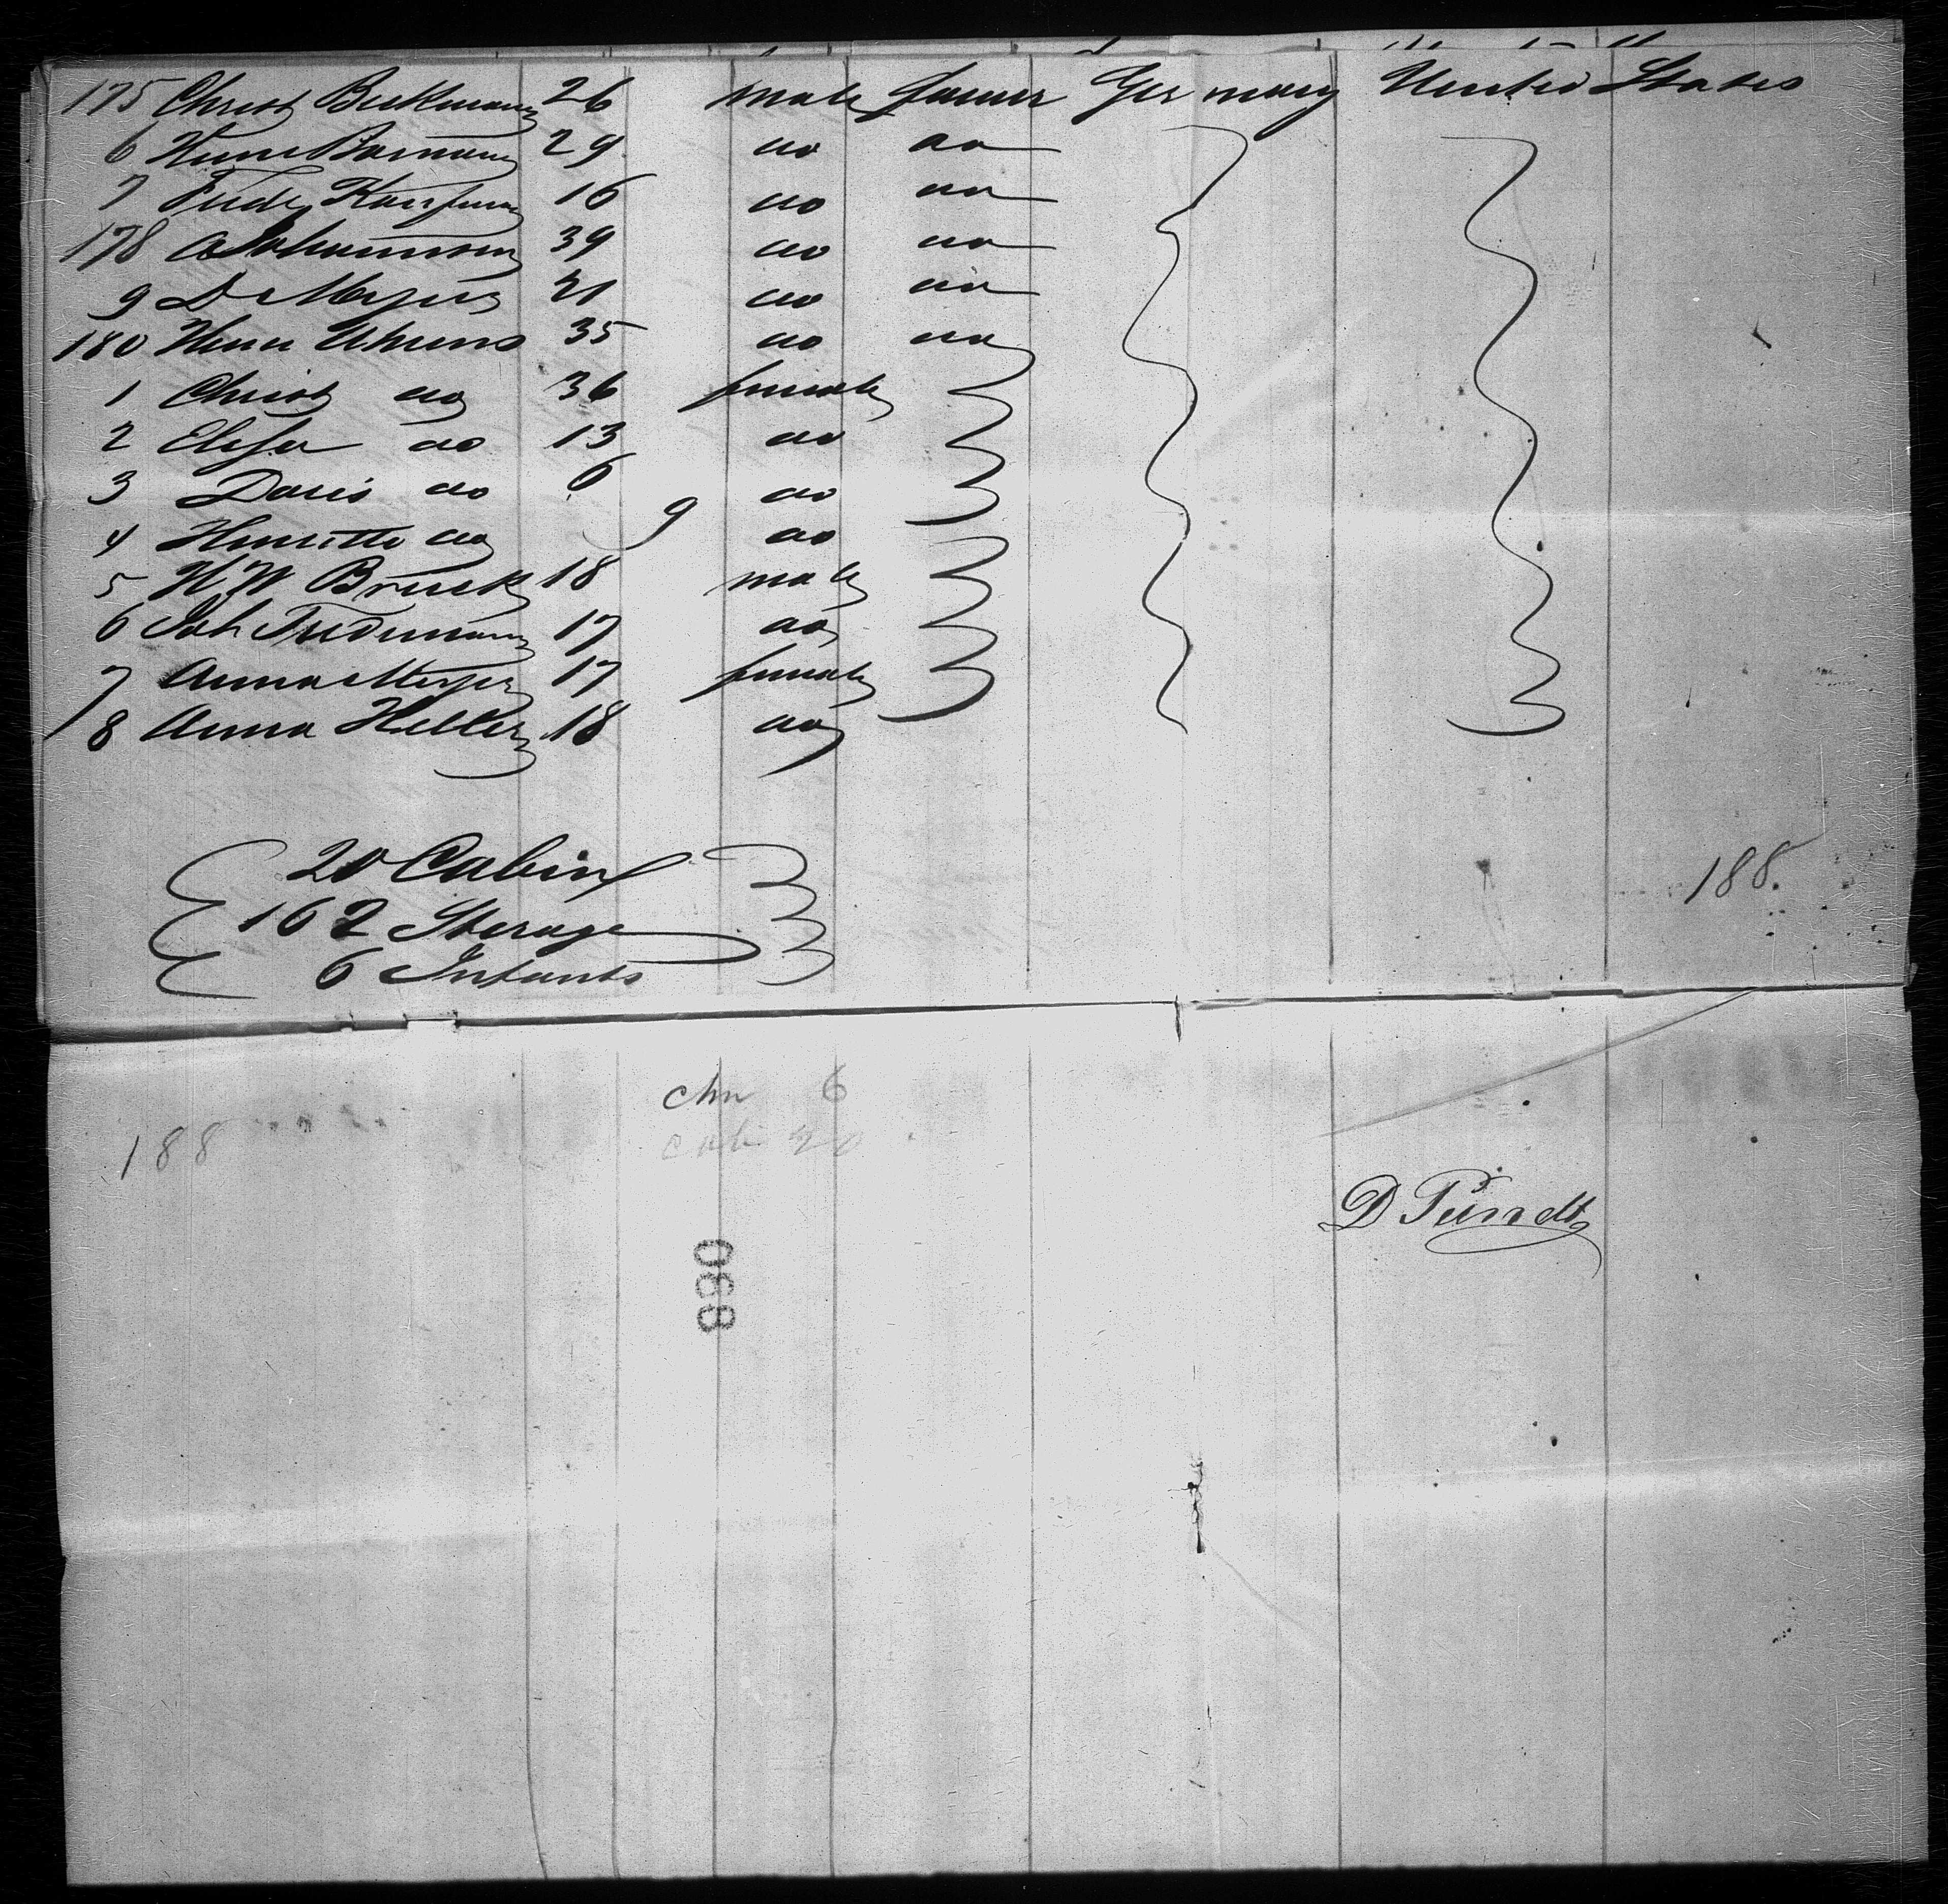 175 Christ Beckmann 26 male farmer Germany United States
6 Herm Barmann 29 do do
7 Fried Kaufmann 16 do do
178 A Johannsen 39 do do
9 D Meyer 21 do do
180 Herm Ahrens 35 do do
1 Christ do 36 female
2 Elisa do 13 do
3 Doris do 6 do
4 Henriette do 9 do
5 H W Bruck 18 male
6 Joh Friedemann 17 do
7 Anna Meyer 17 female
8 Anna Heller 18 do
20 Cabin
188.
162 Sterage
6 Infants
chn 6
188
cab 20
D Pündt
0880